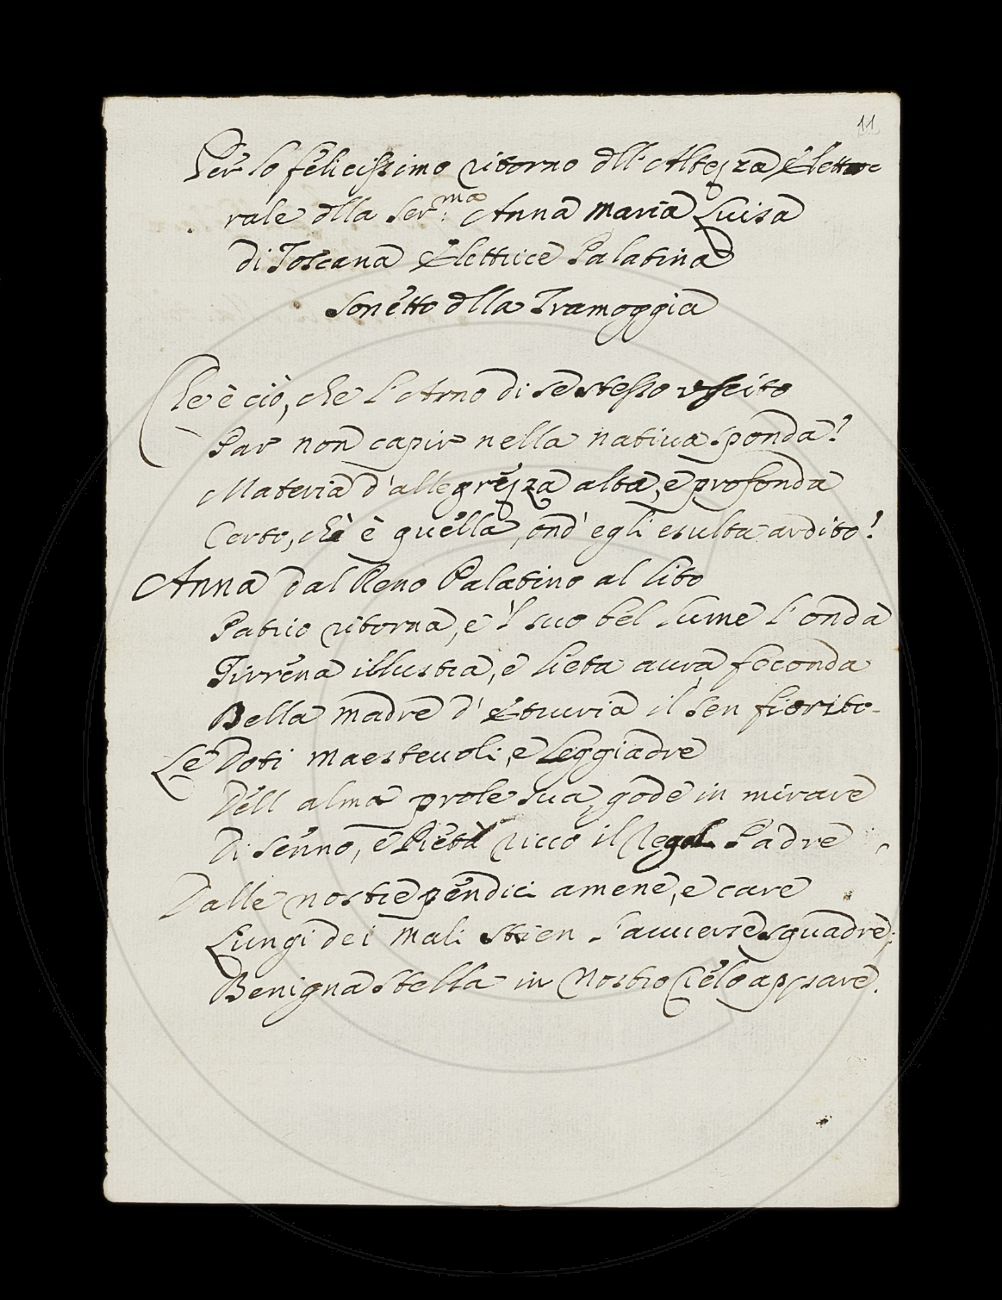 11
Per lo felicissimo ritorno dll'Altezza Eletto-
rale dlla Ser.ma Anna Maria Luisa
di Toscana Elettrice Palatina
Sonetto dlla Tramoggia
Che è ciò, che l'Arno di se stesso uscito
Par non capir nella nativa sponda?
Materia d'allegrezza alta, e profonda
Certo, chè è quella, ond'egli esulta ardito!
Anna dal Reno Palatino al lito
Patrio ritorna, e 'l suo bel lume l'onda
Tirrena illustra, e lieta aura feconda
Bella madre d'Etruria il sen fiorito.
Le Doti maestevoli, e leggiadre
Dell alma prole sua, gode in mirare
Di senno, e Pietà ricco il Regal Padre
Dalle nostre pendici amene, e care
Lungi dei mali stien l'avverse squadre;
Benigna stella in Nostro Cielo appare.